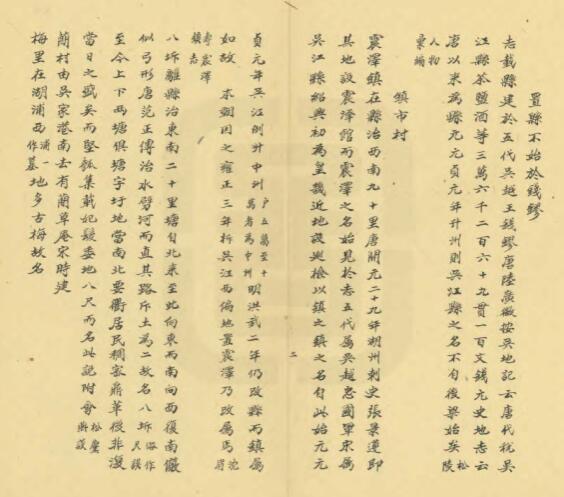 置縣不始於錢鏐
志載縣建於五代吳越王錢鏐唐陸廣微按吳地記云唐代稅吳
江縣茶鹽酒等三萬六千二百六十九貫一百文錢元史地志云
唐以來為縣元元貞元年升州則吳江縣之名不自後梁始矣松陵
人物
彙編
鎮市村
震澤鎮在縣治西南九十里唐開元二十九年湖州刺史張景遵即
其地設震澤館而震澤之名始見於志五代屬吳越忠國軍宋屬
吳江縣紹興初為皇畿近地設巡檢以鎮之鎮之名自此始元元
二
貞元年吳江則升中州戶五萬至十萬者為中州明洪武二年仍改縣而鎮屬
如故 本朝因之雍正三年析吳江西偏地置震澤乃改屬焉沈
壽震澤
鎮志
八坼離縣治東南二十里塘自北來至此向東西南向西復南儼
似弓形唐范正傳治水劈河而直其路斥土為二故名八坼俗作尺誤
至今上下兩塘俱塘字圩地當南北要衢居民稠密鼎革後非復
當日之盛矣而堅瓠集載妃髮委地八尺而名此說附會松塵
蘭村由吳家港南去有蘭草庵宋時建
梅里在湖浦西浦一作墓地多古梅故名